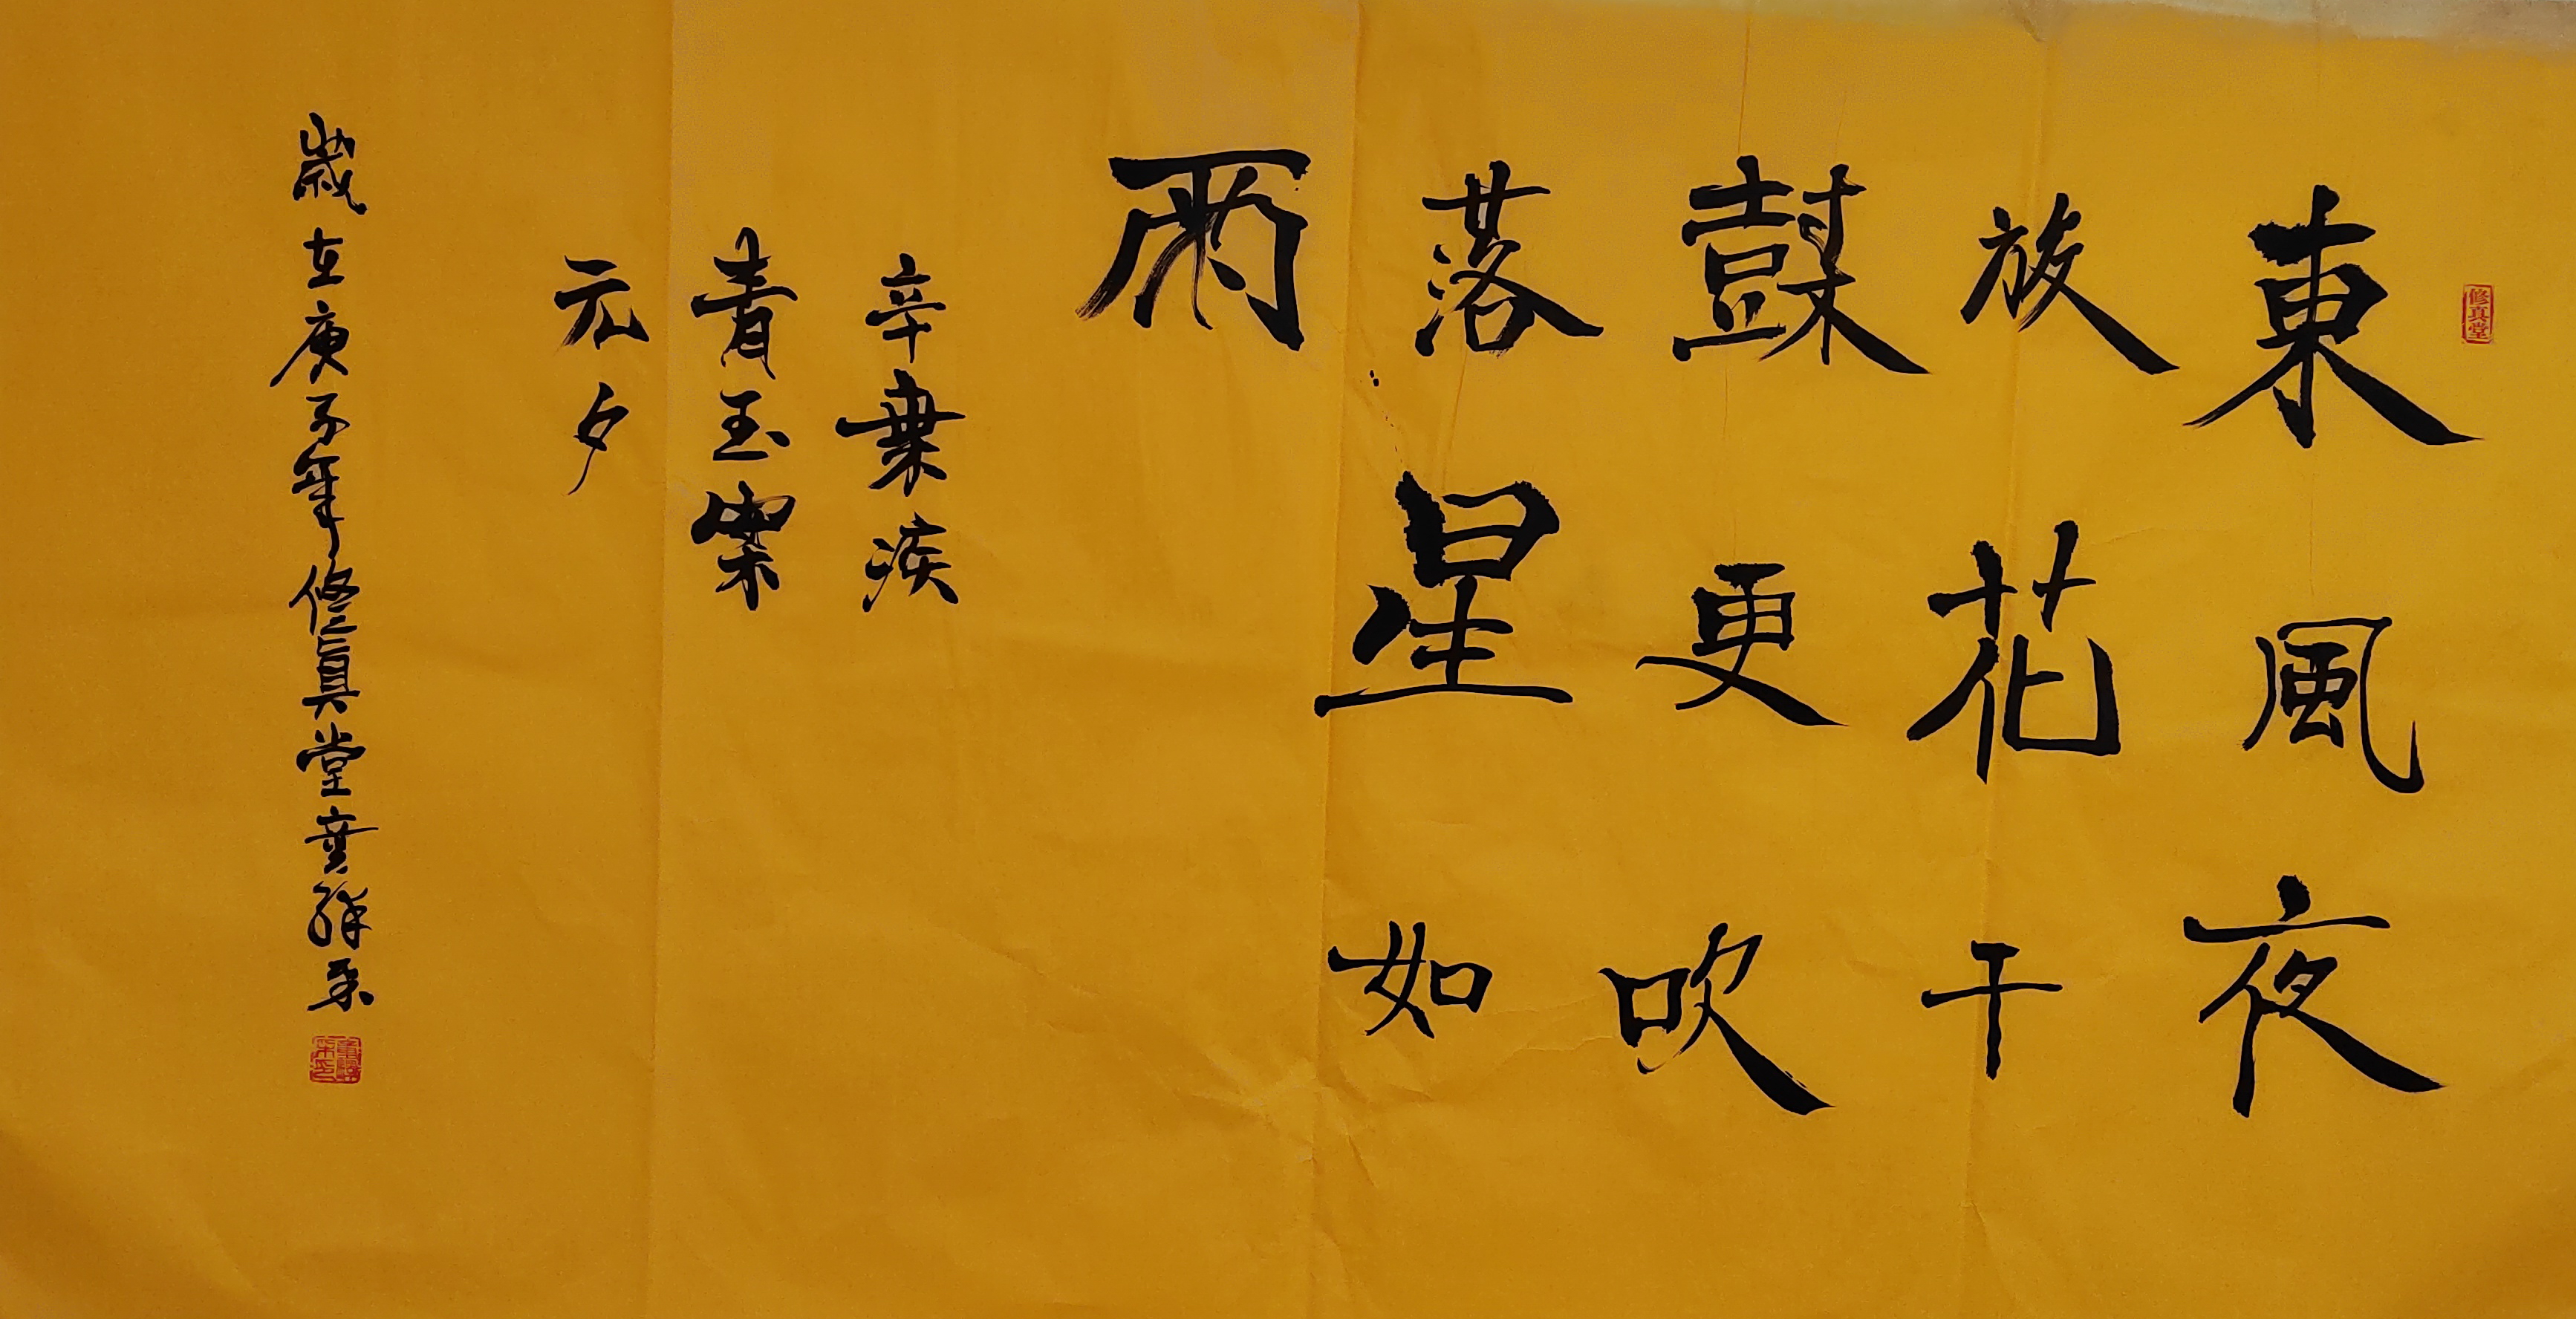 修真堂
東風夜
放花千
鼓更吹
落星如
雨
辛棄疾
青玉案
元夕
歲在庚子年修真堂